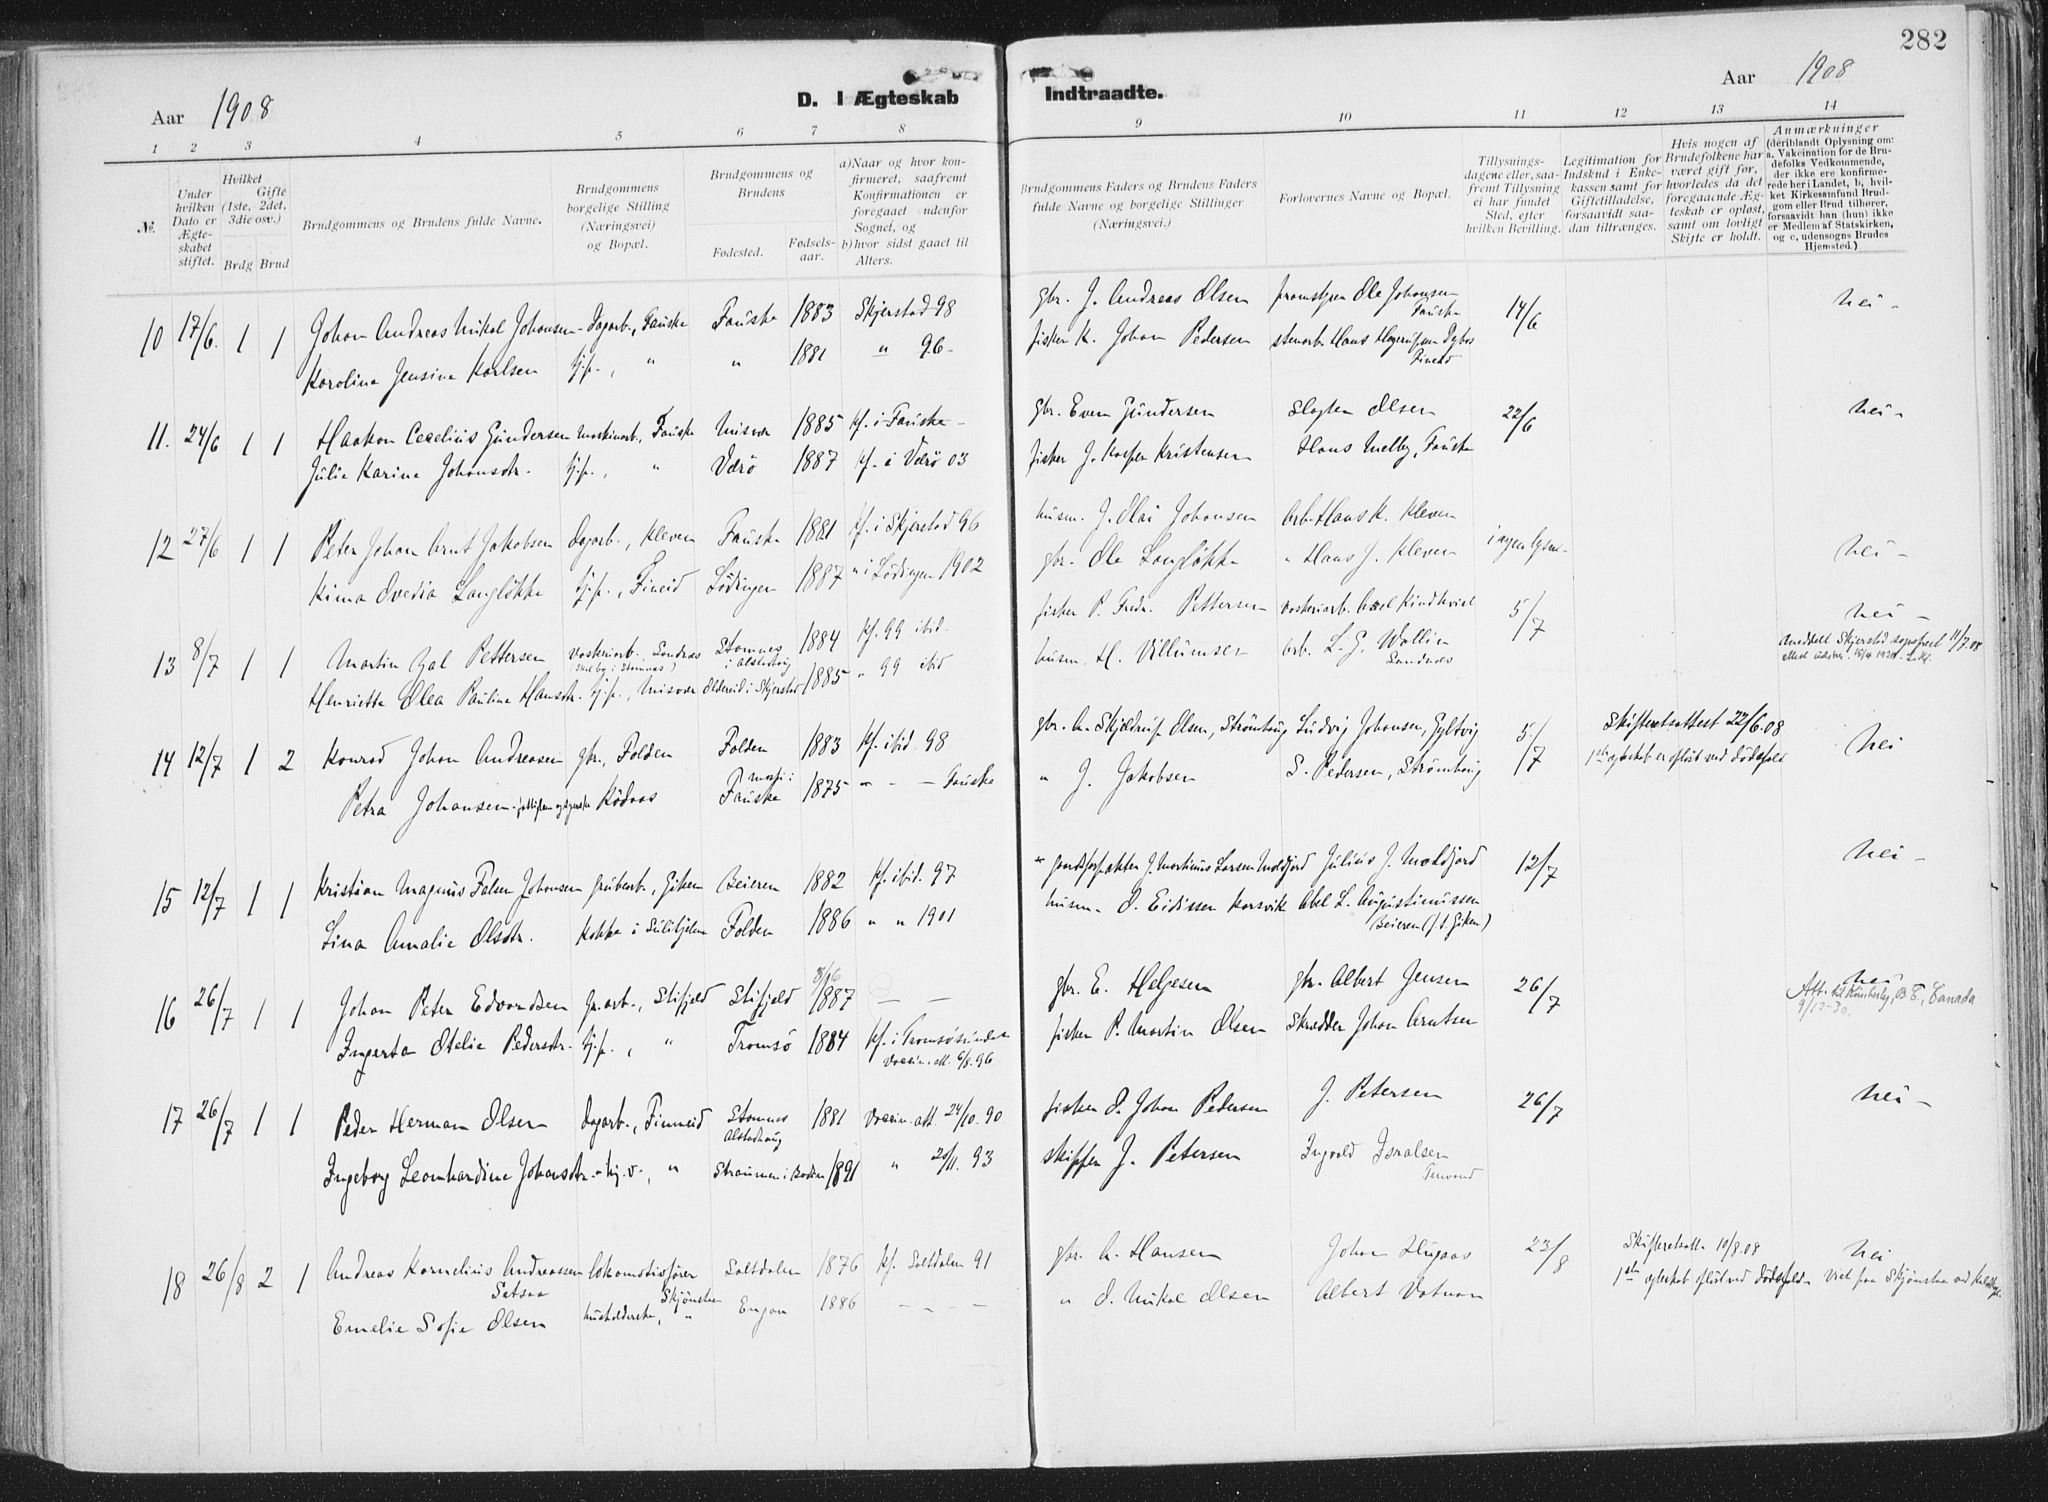 282
Aar 1908
D. I Ægteskab Indtraadte.
Aar 1908
1 2 3 4 5 6 7 8 9 10 11 12 13 14
№.
Under hvilken Dato er Ægteskabet stiftet.
Hvilket Gifte (1ste, 2det, 3die osv.)
Brdg Brud
Brudgommens og Brudens fulde Navne.
Brudgommens borgelige Stilling (Næringsvei) og Bopæl.
Brudgommens og Brudens
Fødested.
Fødselsaar.
a) Naar og hvor konfirmeret, saafremt Konfirmationen er foregaaet udenfor Sognet, og
b) hvor sidst gaaet til Alters.
Brudgommens Faders og Brudens Faders fulde Navne og borgelige Stillinger (Næringsvei.)
Forlovernes Navne og Bopæl.
Tillysningsdagene eller, saafremt Tillysning ei har fundet Sted, efter hvilken Bevilling.
Legitimation for Indskud i Enkekassen samt for Giftetilladelse, forsaavidt saadan tiltrænges.
Hvis nogen af Brudefolkene har været gift før, hvorledes da det foregaaende Ægteskab er opløst, samt om lovligt Skifte er holdt.
Anmærkninger (deriblandt Oplysning om: a. Vakcination for de Brudefolks Vedkommende, der ikke ere konfirmerede her i Landet, b, hvilket Kirkessamfund Brudgom eller Brud tilhører, forsaavidt han (hun) ikke er Medlem af Statskirken, og c, udensogns Brudes Hjemsted.)
10 17/6. 1 1 Johan Andreas Mikal Johansen - Dagarb., Fauske Fauske 1883 Skjerstad 98 gbr. J. Andreas Olsen Ole Johansen Fauske 14/6 nei -
Karoline Jensine Karlsen tj.p., " " 1881 " 96 - fisker K. Johan Pedersen stenarb. Hans Fineid
11. 24/6 1 1 Haakon Cecelius Gundersen maskinarb., Fauske Misvær 1885 kf. i Fauske - gbr. Even Gundersen Olsen 22/6 nei -
Julie Karine Johansdtr. tj.p., " Værö 1887 kf. i Værö 03 fisker J. Kasper Kristensen Hans Melby, Fauske
12 27/6 1 1 Peter Johan Arnt Jakobsen Dagarb., Kleven Fauske 1881 kf. i Skjerstad 96 husm. J. Olai Johansen Arb. Hans K. Kleven ingen lysn. nei -
Kima Ovedia Langlökke tj.p., Fineid Lödingen 1887 " i Lödingen 1902 gbr. Ole Langlökke " Hans J. Kleven
13 8/7 1 1 Martin Pettersen Sandnes Stamnes i Alstahaug 1884 kf. 99 ibid. fisker P. Fredr. Pettersen Axel 5/7 nei -
Henriette Olea Pauline Hansdtr. tj.p., Misvær Oldereid i Skjerstad 1885 " 99 ibid husm. H. Villumsen arb. L. G. Wallin Sandnes
Anedtelt Skjerstad sogneprest 11/7.08
14 12/7 1 2 Konrad Johan Andreasen gbr., Folden Folden 1883 kf. ibid. 98 gbr. A. Skjeldrup Olsen, Strömhaug Ludvig Johansen, 5/7 Skifteretsattest 22/6.08 nei
Petra Johansen - Rödaas Fauske 1875 " - - Fauske " J. Jakobsen S. Pedersen, Strömhaug 1ste egteskab er oplöst ved Dödsfald
15 12/7 1 1 Kristian Magnus Falsen Johansen grubearb., Giken Beieren 1882 kf. ibid. 97 J. Martinus Larsen Moldjord Julius J. Moldjord 12/7 nei -
Lina Amalie Olsdtr. Kokke i Sulitjelma Folden 1886 " " 1901 husm. O. Eidissen Korsvik Abel L. Augustinussen Beieren (p.t. Giken)
16 26/7 1 1 Johan Peter Edvardsen gr.arb., Stifjeld Stifjeld 8/6 1887 - - gbr. E. Helgesen gbr. Albert Jensen 26/7 nei
Att. til Kimberly, B.C., Canada 9/12-30.
Ingerta Otelie Pedersdtr. tj.p., " Tromsö 1884 kf. i Tromsösundet Vaccin. att. 6/8.96 fisker P. Martin Olsen Skrædder Johan Arntsen
17 26/7 1 1 Peder Herman Olsen Dagarb., Finneid Stamnes Alstahaug 1881 Vaccin. att. 24/10.90 fisker O. Johan Pedersen J. Petersen 26/7 nei -
Ingeborg Leonhardine Johansdtr. " Straumen i Bodin 1891 " 20/11.93 skipper J. Petersen Ingvald Isralsen
18 26/8 2 1 Andreas Kornelius Andreassen Setsaa lokomotivförer Skjönstaa Saltdalen 1876 kf. Saltdalen 91 gbr. A. Hansen Johan Hugaas 23/8 Skifteretsatt. 10/8.08 nei
Emelie Sofie Olsen husholderske, " Engan 1886 - - - - " O. Mikal Olsen Albert Vatnan 1ste egteskab oplöst ved Dödsfald. Viet paa Skjönstaa